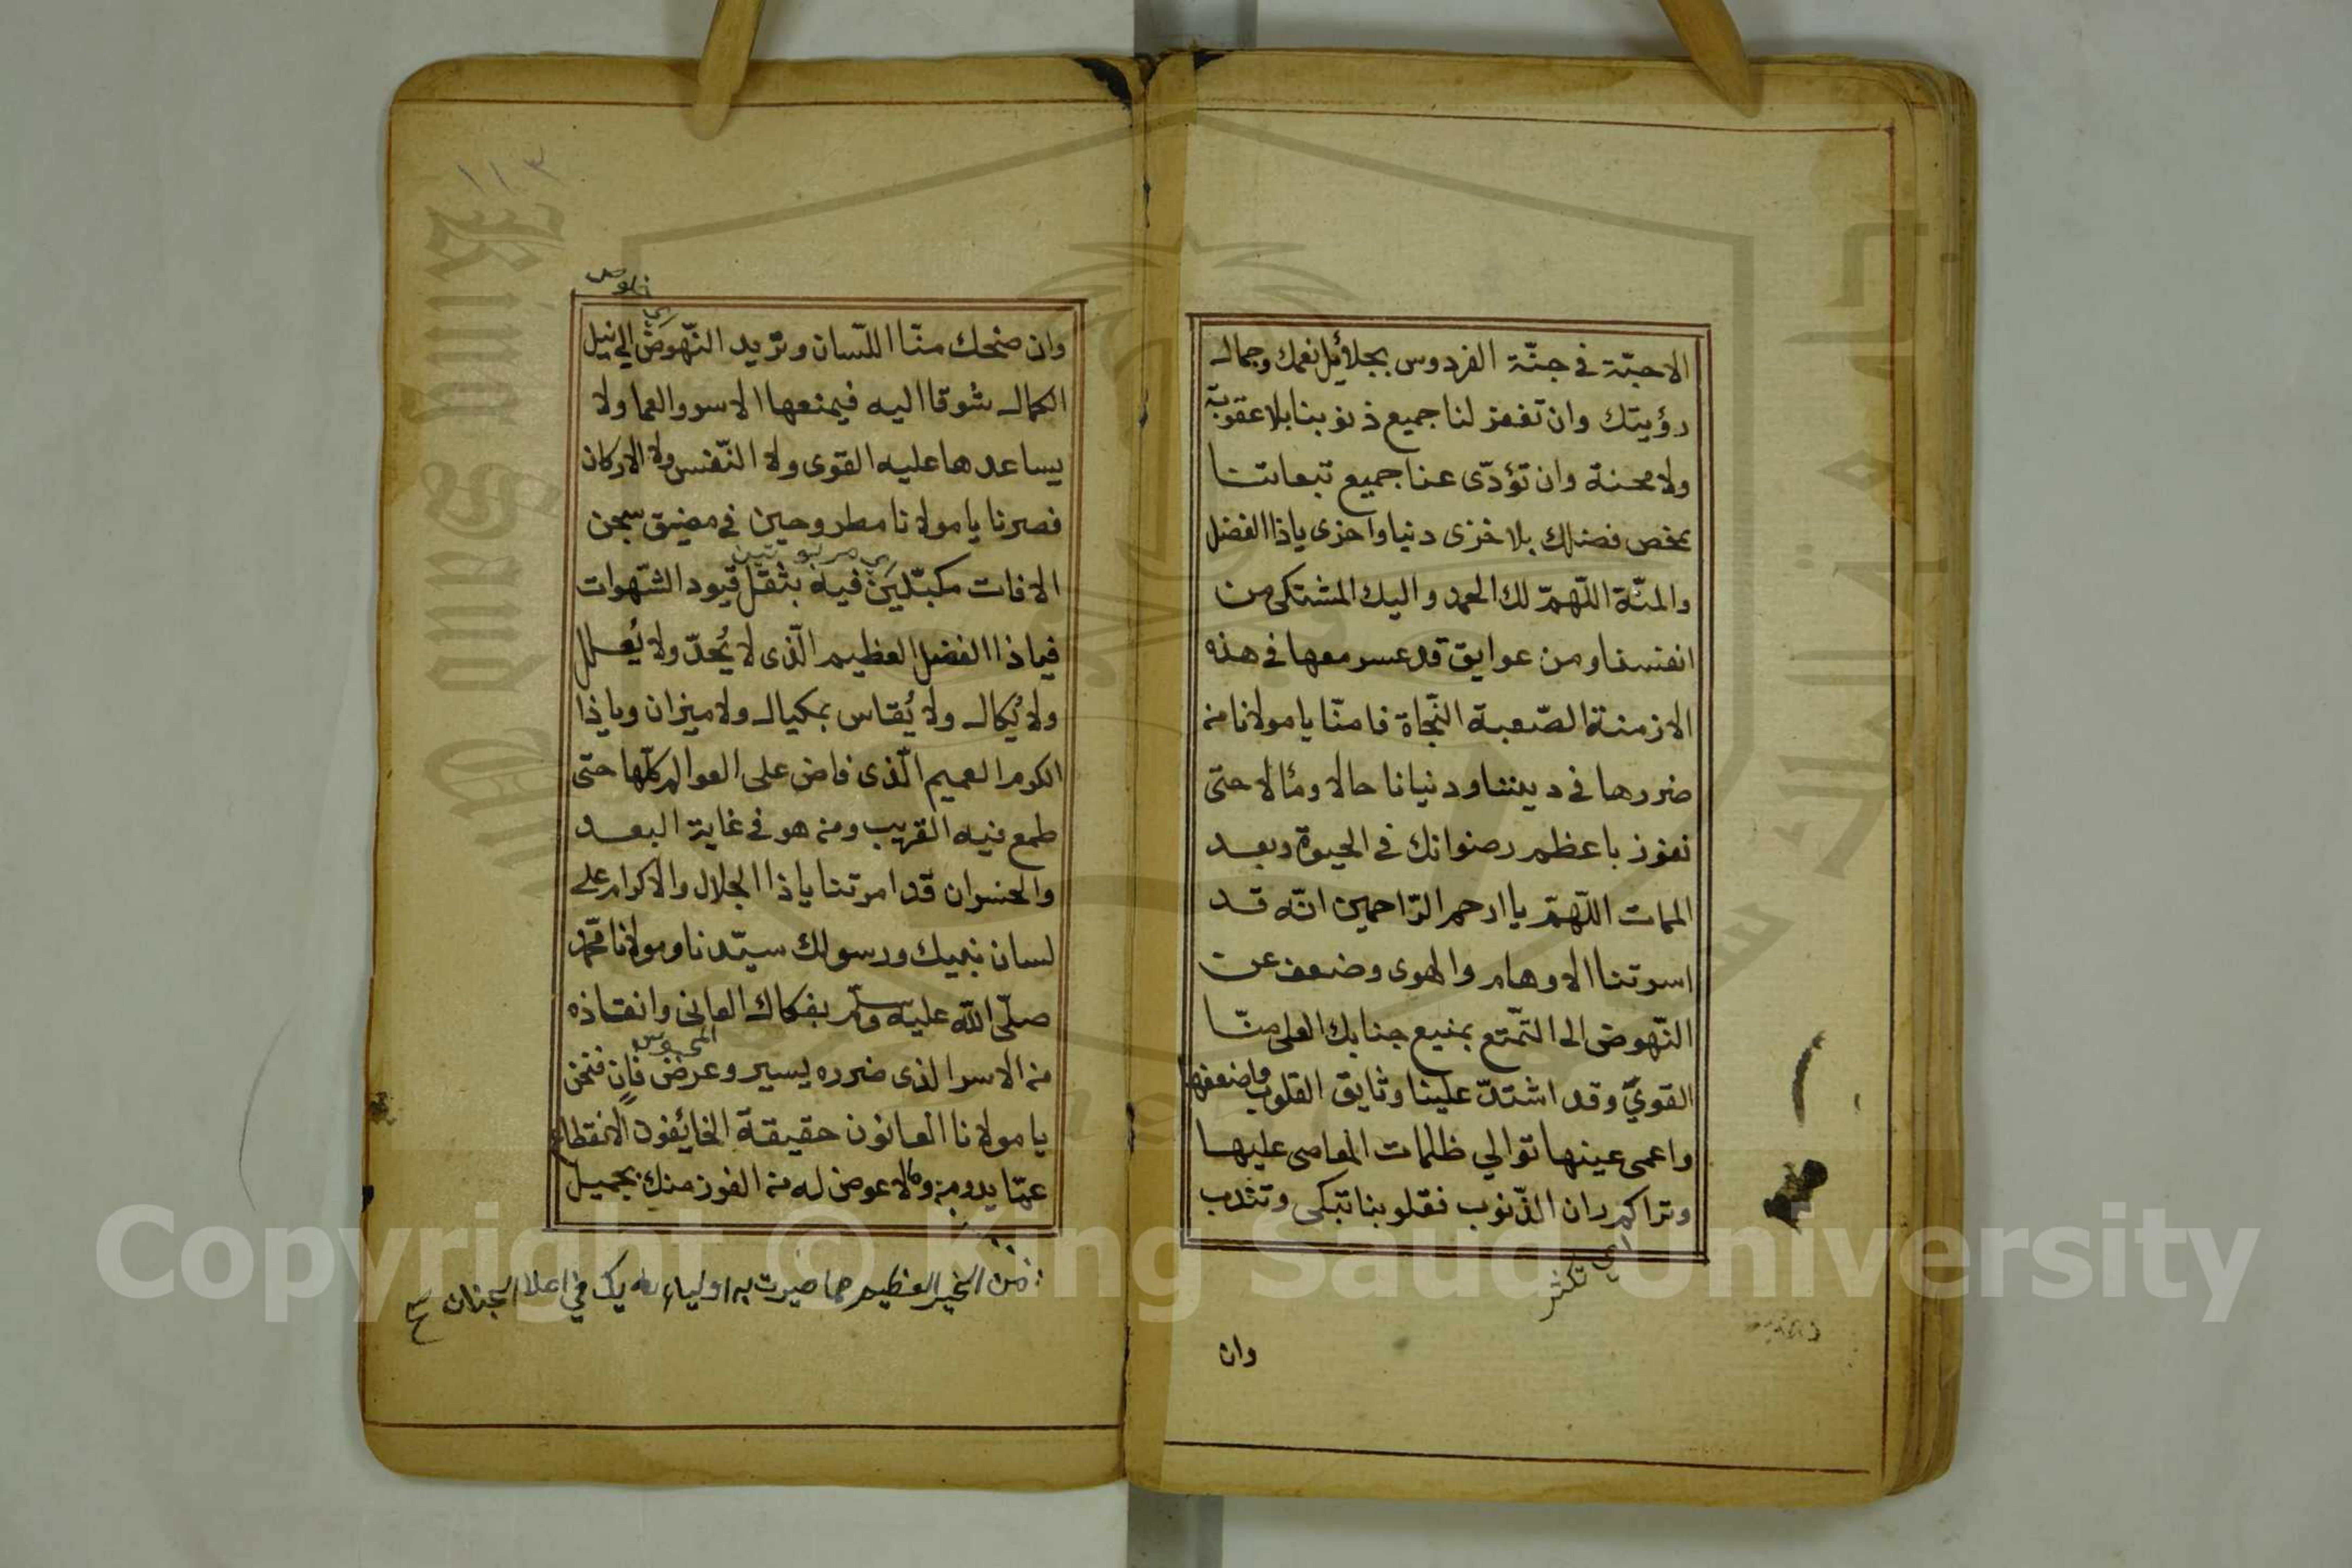 الاحبّة في جنّة الفردوس بجلائل نعمك وجمال
رؤيتك وان تغفر لنا جميع ذنوبنا بلا عقوبة
ولا محنة وان تؤدّى عنا جميع تبعاتنا
بمخص فضلك بلا خزى دنيا واخرى ياذا الفضل
والمنّة اللّهمّ لك الحمد واليك المشتكى من
انفسنا ومن عوايق قد عسر معها فى هذه
الازمنة الصّعبة النّجاة فامنّا يا مولانا من
ضررها فى ديننا ودنيانا حالا ومألا حتى
نفوز باعظم رضوانك فى الحيوة وبعد
الممات اللّهمّ يا ارحم الرّاحمين انّه قد
اسرتنا الاوهام والهوى وضعف عن
النّهوض الى التّمتع بمنيع جنابك العلى منّا
القوىّ وقد اشتدّ علينا وثايق القلوب واضعفها
واعمى عينها توالي ظلمات المعاصى عليها
وتراكم ران الذّنوب فقلوبنا تبكى وتندب
اي تكثر
وان
١١٣
خلوص
وان ضحك منّا اللّسان وتريد النّهوض الى نيل
الكمال شوقا اليه فيمنعها الاسر والعما ولا
يساعدها عليه القوى ولا النّفس ولا الاركان
فصرنا يا مولانا مطروحين فى مضيق سجن
اي مربوتين
الافات مكبّلين فيه بثقل قيود الشّهوات
فياذا الفضل العظيم الّذى لا يُحدّ ولا يُعلل
ولا يُكال ولا يُقاس بمكيال ولا ميزان وياذا
الكرم العميم الّذى فاض على العوالم كلّها حتى
طمع فيه القريب ومن هو فى غاية البعد
والخسران قد امرتنا ياذا الجلال والاكرام على
لسان نبيك ورسولك سيّدنا ومولانا محمّد
صلّى الله عليه وسلّم بفكاك العانى وانقاذه
المحبوس
من الاسر الذى ضرره يسير وعرض فانٍ فنحن
يا مولانا العانون حقيقة الخائفون الانقطاع
عمّا يدوم ومالا عوض له من الفوز منك بجميل
من الخير العظيم مما صيرت به اولياء لديك في اعلا الجنان صح
Copyright © King Saud University